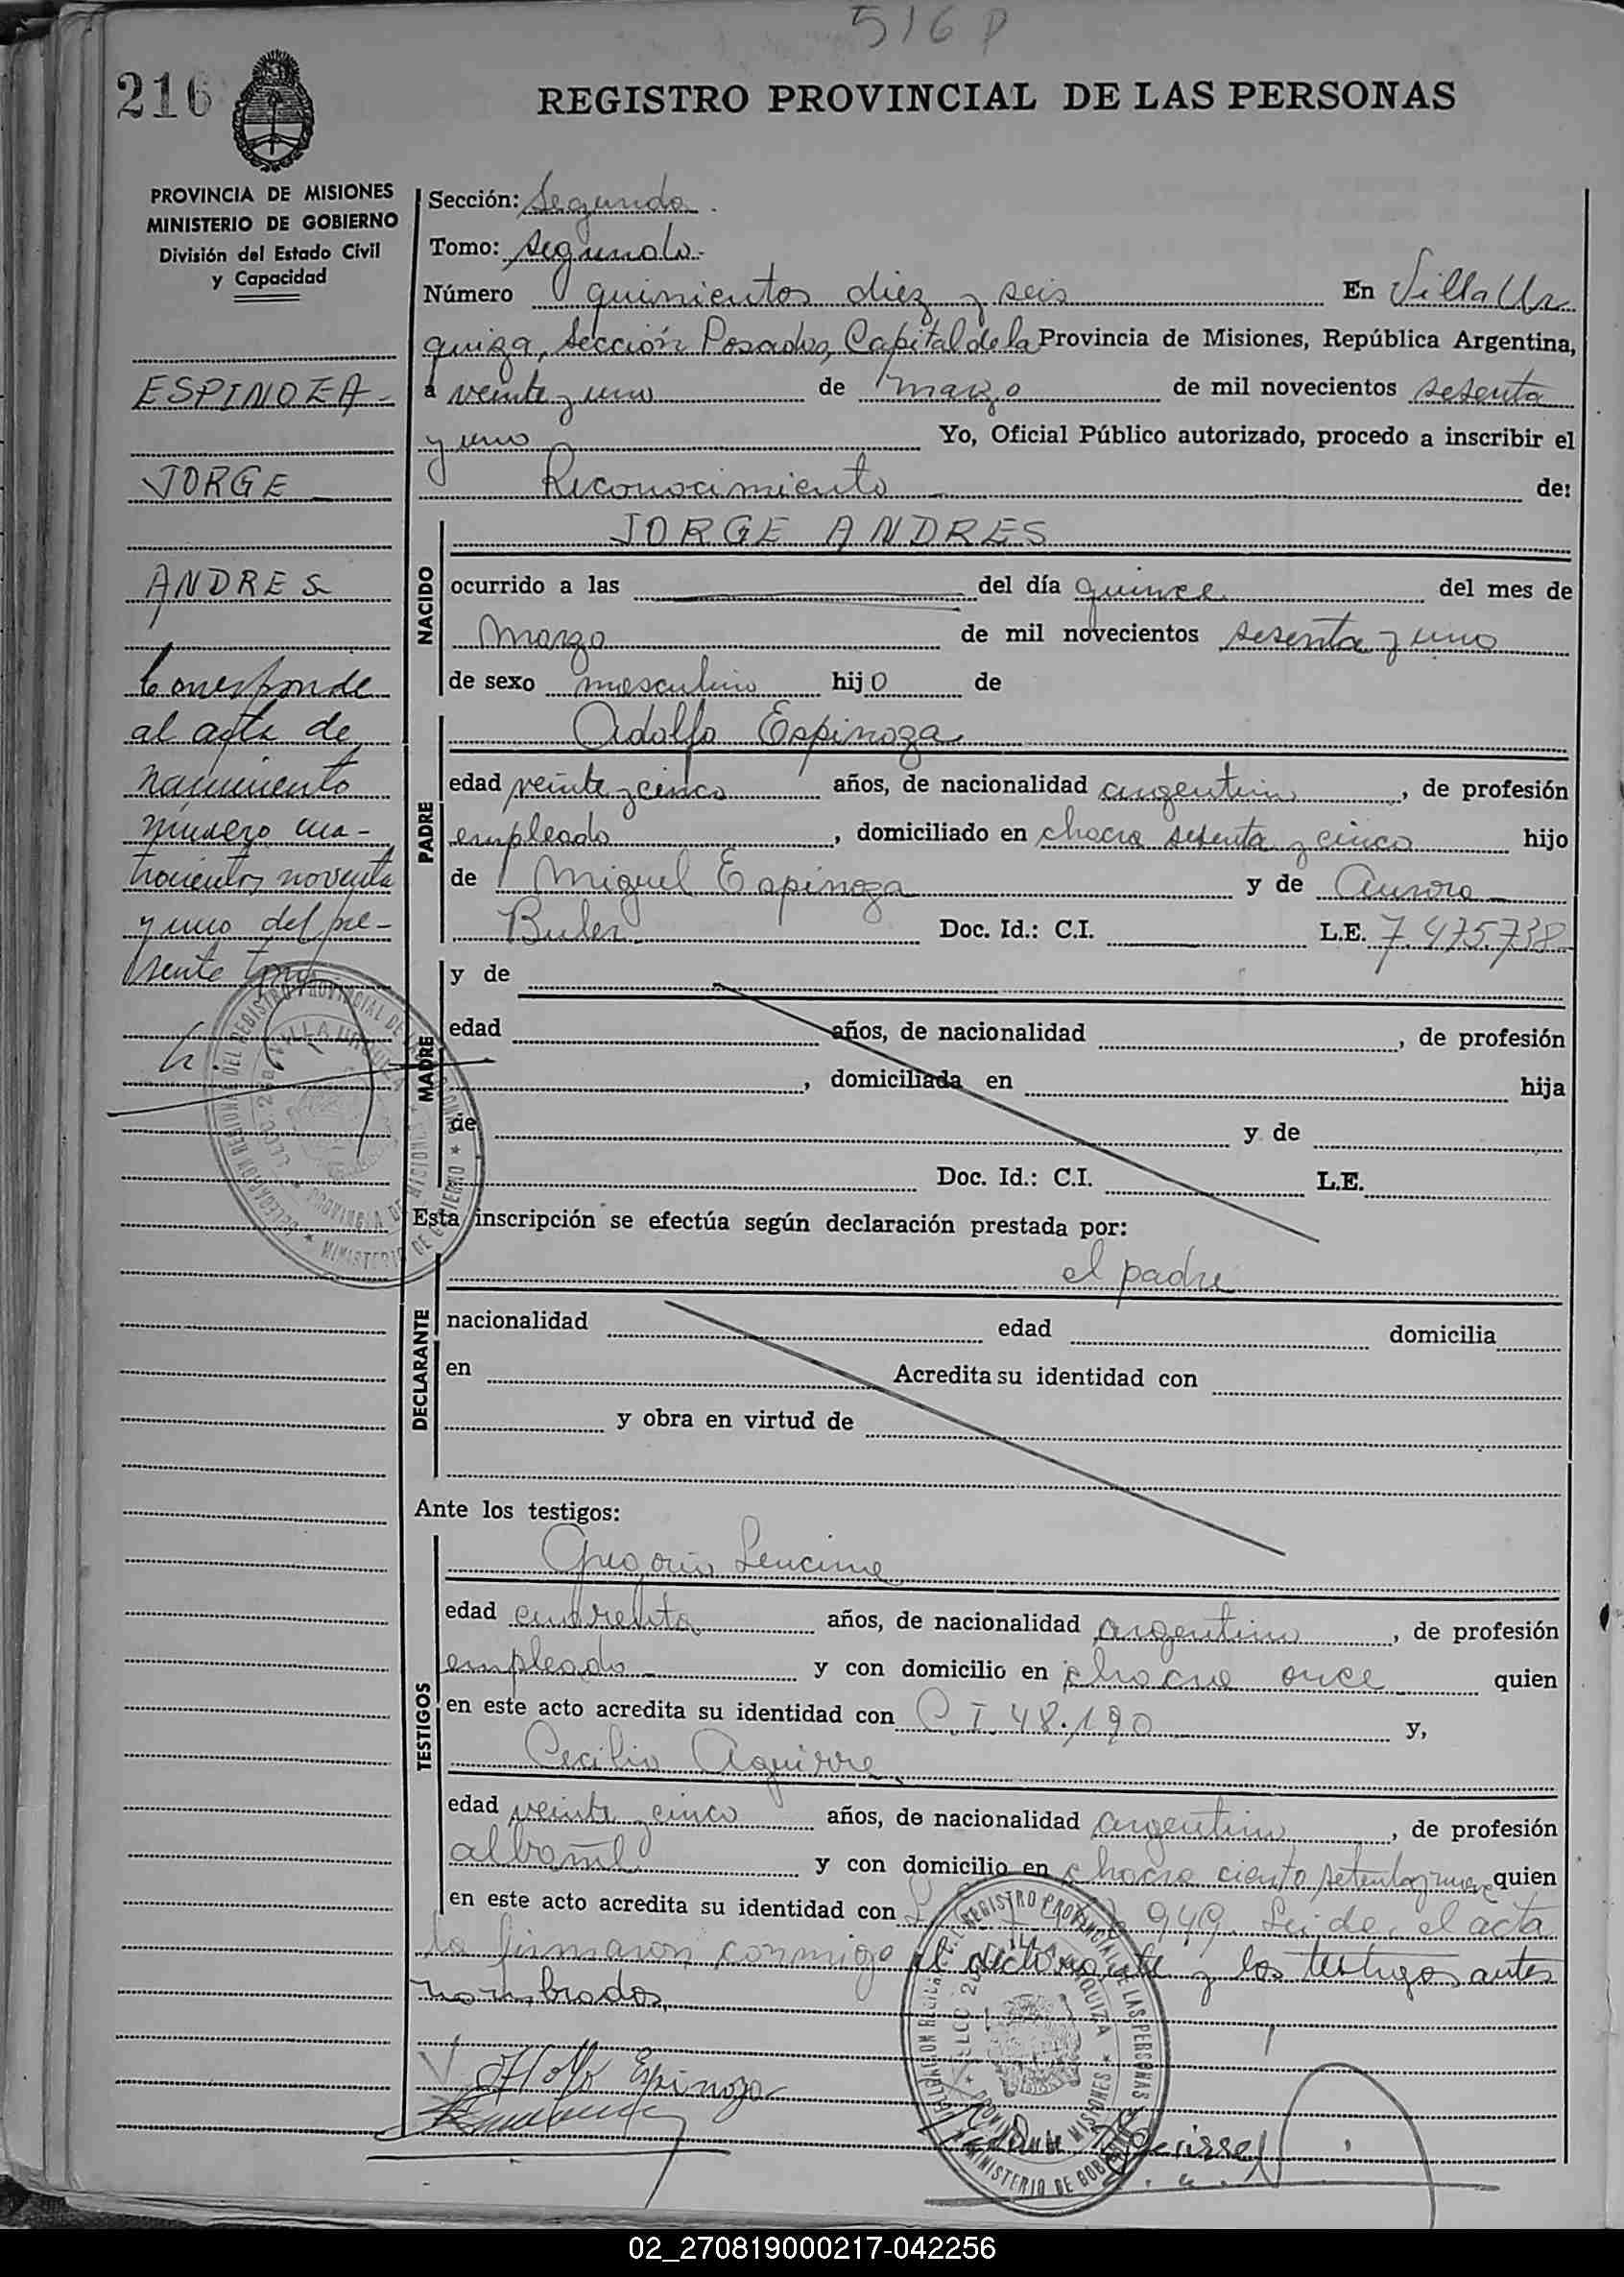 516 P
216
REGISTRO PROVINCIAL DE LAS PERSONAS
PROVINCIA DE MISIONES
MINISTERIO DE GOBIERNO
División del Estado Civil
y Capacidad
ESPINOZA -
JORGE
ANDRES
Corresponde
al acta de
nacimiento
número cua-
trocientos noventa
y uno del pre-
sente tomo
Sección: Segunda.
Tomo: segundo.
Número quinientos diez y seis En Villa Ur
quiza, Sección Posadas, Capital de la Provincia de Misiones, República Argentina,
a veinte y uno de marzo de mil novecientos sesenta
y uno Yo, Oficial Público autorizado, procedo a inscribir el
Reconocimiento de:
NACIDO
JORGE ANDRES
ocurrido a las del día quince del mes de
Marzo de mil novecientos sesenta y uno
de sexo masculino hijo de
PADRE
Adolfo Espinoza
edad veinte y cinco años, de nacionalidad argentino, de profesión
empleado, domiciliado en chacra sesenta y cinco hijo
de Miguel Espinoza y de Aurora
Doc. Id.: C.I. L.E. 7.475.738
MADRE
y de
edad años, de nacionalidad , de profesión
, domiciliada en hija
de y de
Doc. Id.: C.I. L.E.
Esta inscripción se efectúa según declaración prestada por:
el padre
DECLARANTE
nacionalidad edad domicilia
en Acredita su identidad con
y obra en virtud de
Ante los testigos:
TESTIGOS
Gregorio
edad cuarenta años, de nacionalidad argentino, de profesión
empleado y con domicilio en chacra once quien
en este acto acredita su identidad con C.I. 48.190 y,
Cecilio Aguirre
edad veinte y cinco años, de nacionalidad argentino, de profesión
albañil y con domicilio en chacra ciento setenta y nueve quien
en este acto acredita su identidad con 949. Leida el acta
la firmaron conmigo el declarante y los testigos antes
nombrados.
Adolfo Espinoza
DELEGACION REGIONAL DEL REGISTRO PROVINCIAL DE LAS PERSONAS
VILLA URQUIZA
PROVINCIA DE MISIONES
MINISTERIO DE GOBIERNO
02_270819000217-042256